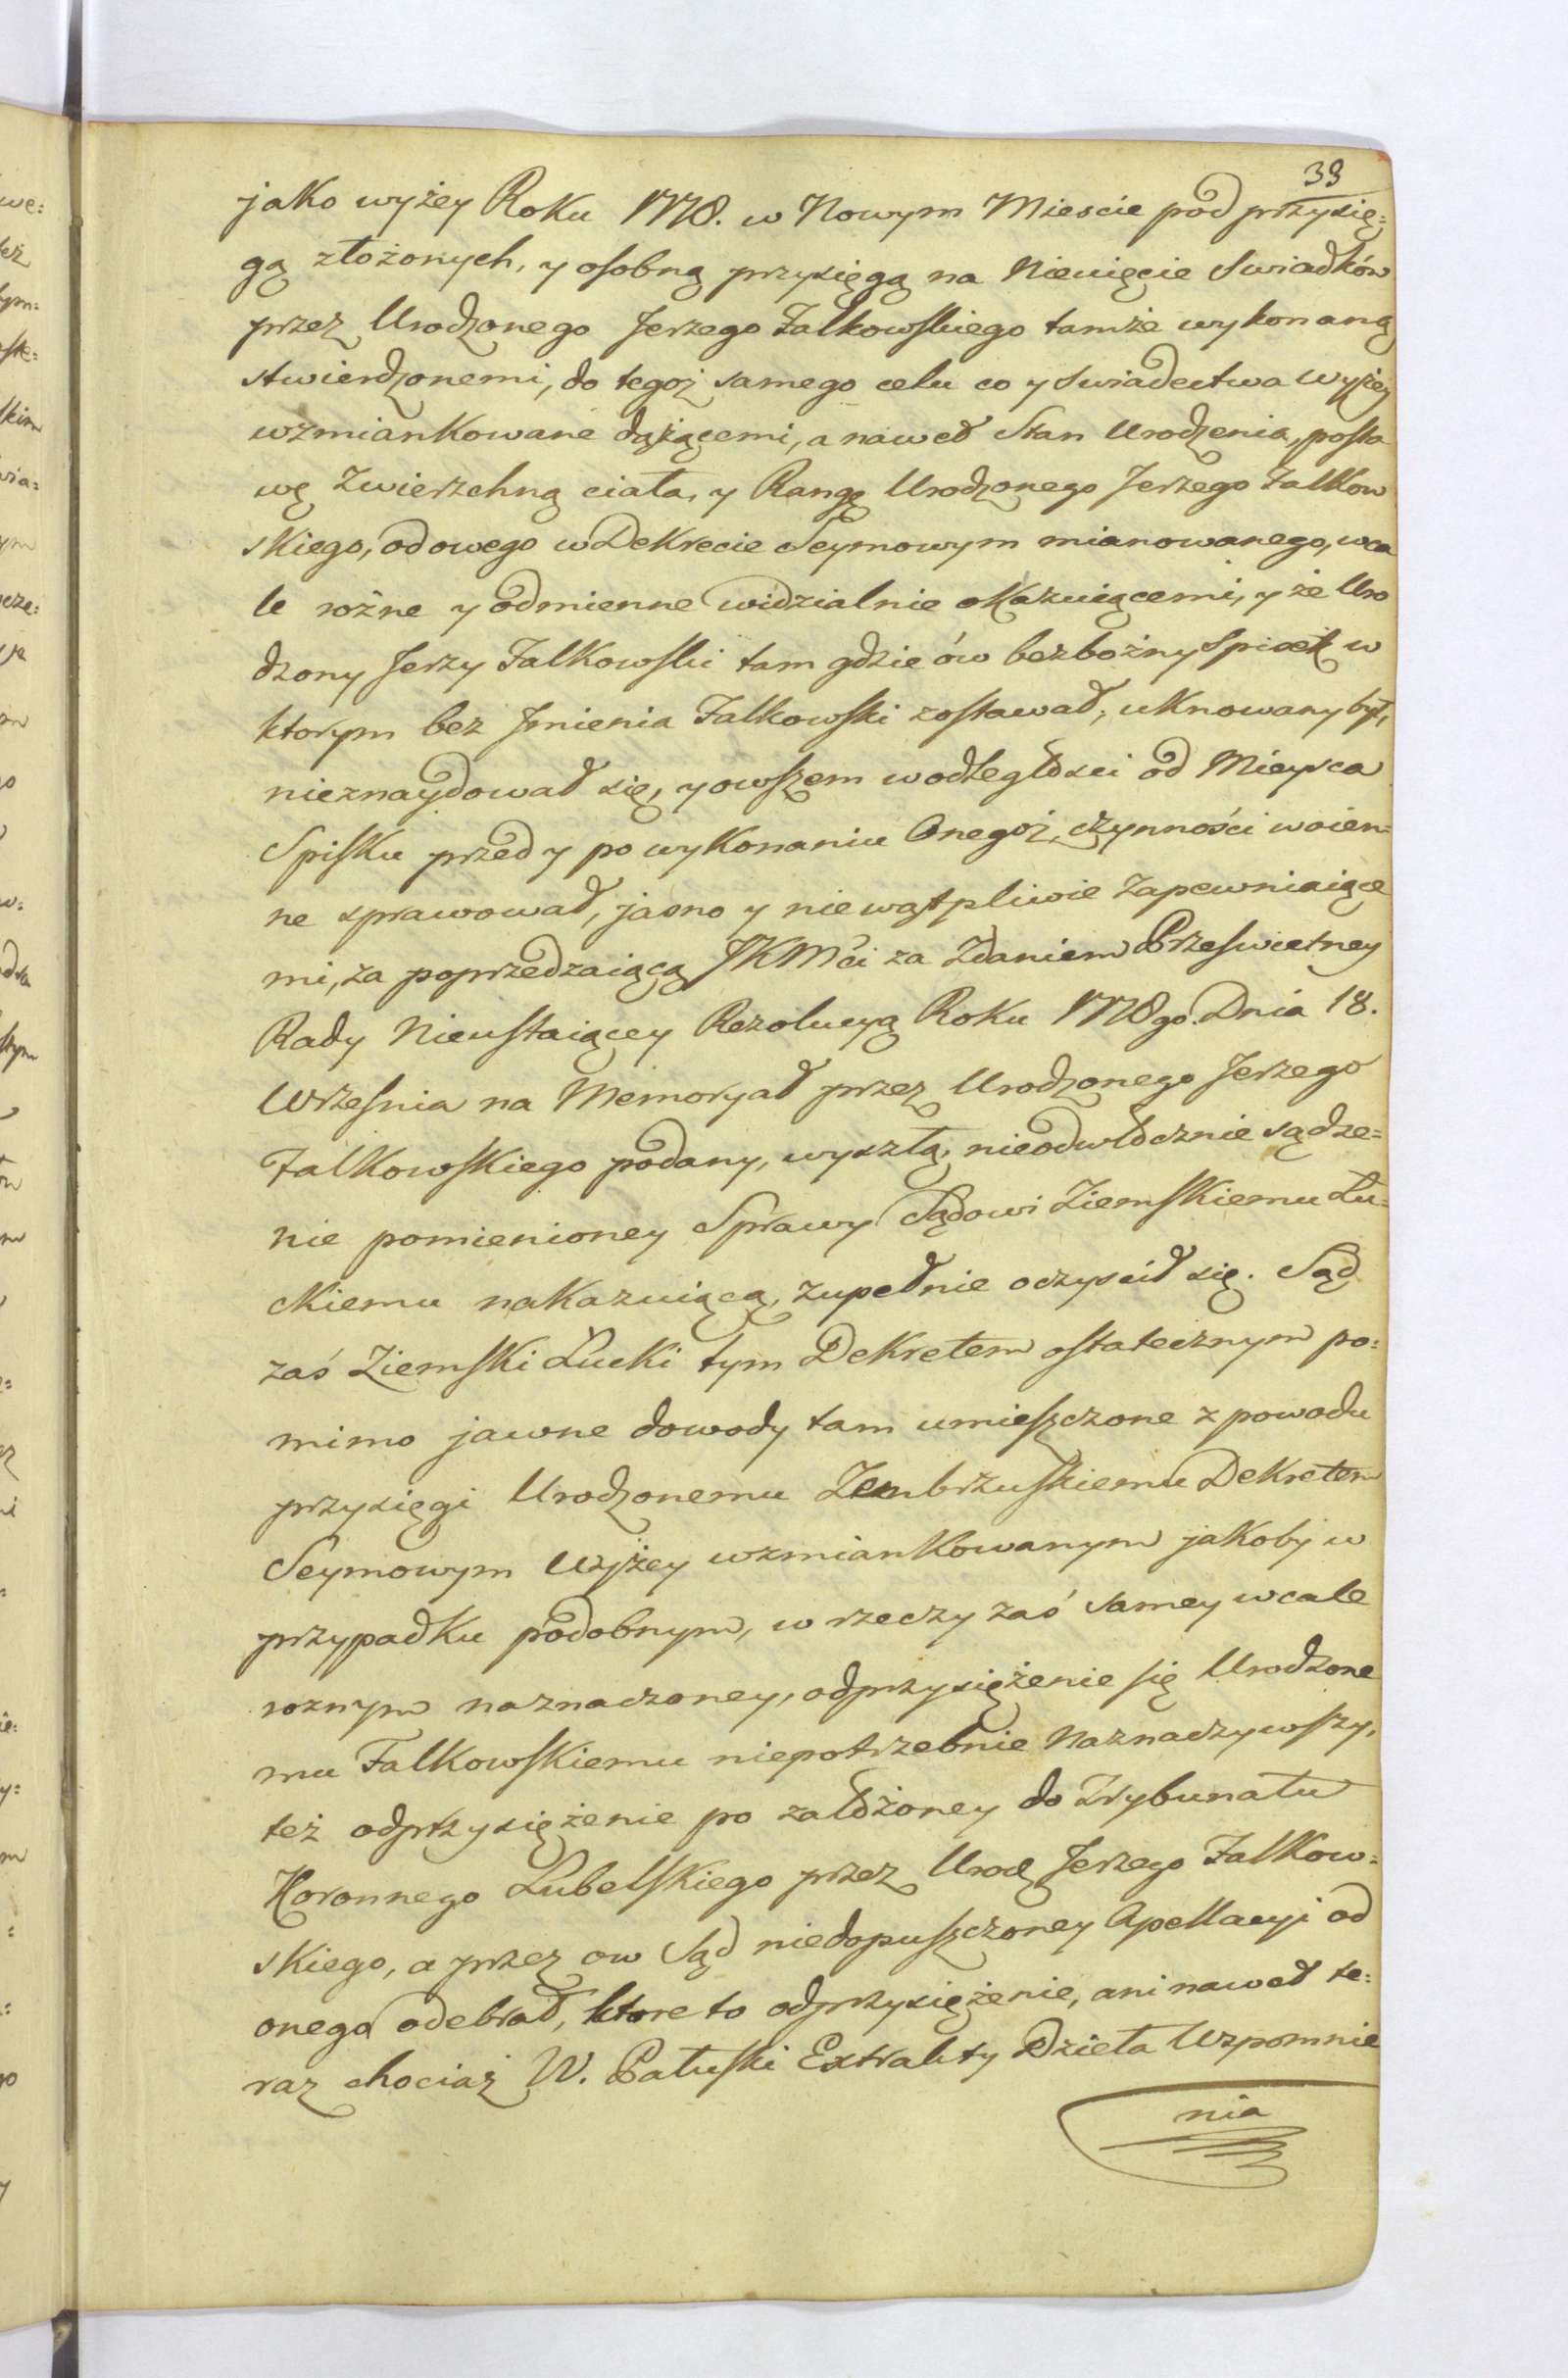 39
jako wyżey Roku 1778. w Nowym Miescie pod przysię:
gą złożonych, y osobną przysięgą na Niewięcie Swiadków
przez Urodzonego Jerzego Falkowskiego tamże wykonaną
stwierdzonemi, do tegoż samego celu co y swiadectwa wyżey
wzmiankowane dążącemi, a naweł Stan Urodzenia, posta
wę Zwierzchną ciała, y Rangę Urodzonego Jerzego Falkow
skiego, od owego w Dekrecie Seymowym mianowanego, wca
le rożne y odmienne widzialnie okazuiącemi, y że Uro
dzony Jerzy Falkowski tam gdzie ów bezbożny Spisek w
ktorym bez Jmienia Falkowski zostawał, uknowany był,
nieznaydował się, y owszem w odległości od Mieysca
Spisku przed y po wykonaniu Onegoż, czynności woien:
ne sprawował, jasno y niewątpliwie zapewniaiące
mi, za poprzedzaiącą JKMci za Zdaniem Przeswietney
Rady Nieustaiącey Rezolucyą Roku 1778go. Dnia 18.
Wrzesnia na Memoryał przez Urodzonego Jerzego
Falkowskiego podany, wyszłą, nieodwłocznie sądze=
nie pomienioney Sprawy Sądowi Ziemskiemu Łu=
ckiemu nakazuiącą, zupełnie oczyscił się. Sąd
zaś Ziemski Łucki tym Dekretem ostatecznym po:
mimo jawne dowody tam umieszczone z powodu
przysięgi Urodzonemu Zembrzuskiemu Dekretem
Seymowym Wyżey wzmiankowanym jakoby w
przypadku podobnym, w rzeczy zaś samey wcale
roznym naznaczoney, odprzysiężenie się Urodzone
mu Falkowskiemu niepotrzebnie Naznaczywszy,
też odprzysiężenie po założoney do Trybunału
Koronnego Lubelskiego przez Urodz Jerzego Falkow:
skiego, a przez ow Sąd niedopuszczoney Apellacyi od
onego odebrał, ktore to odprzysiężenie, ani naweł te:
raz chociaż W. Pałuski Extrakty Dzieła Wspomnie
nia